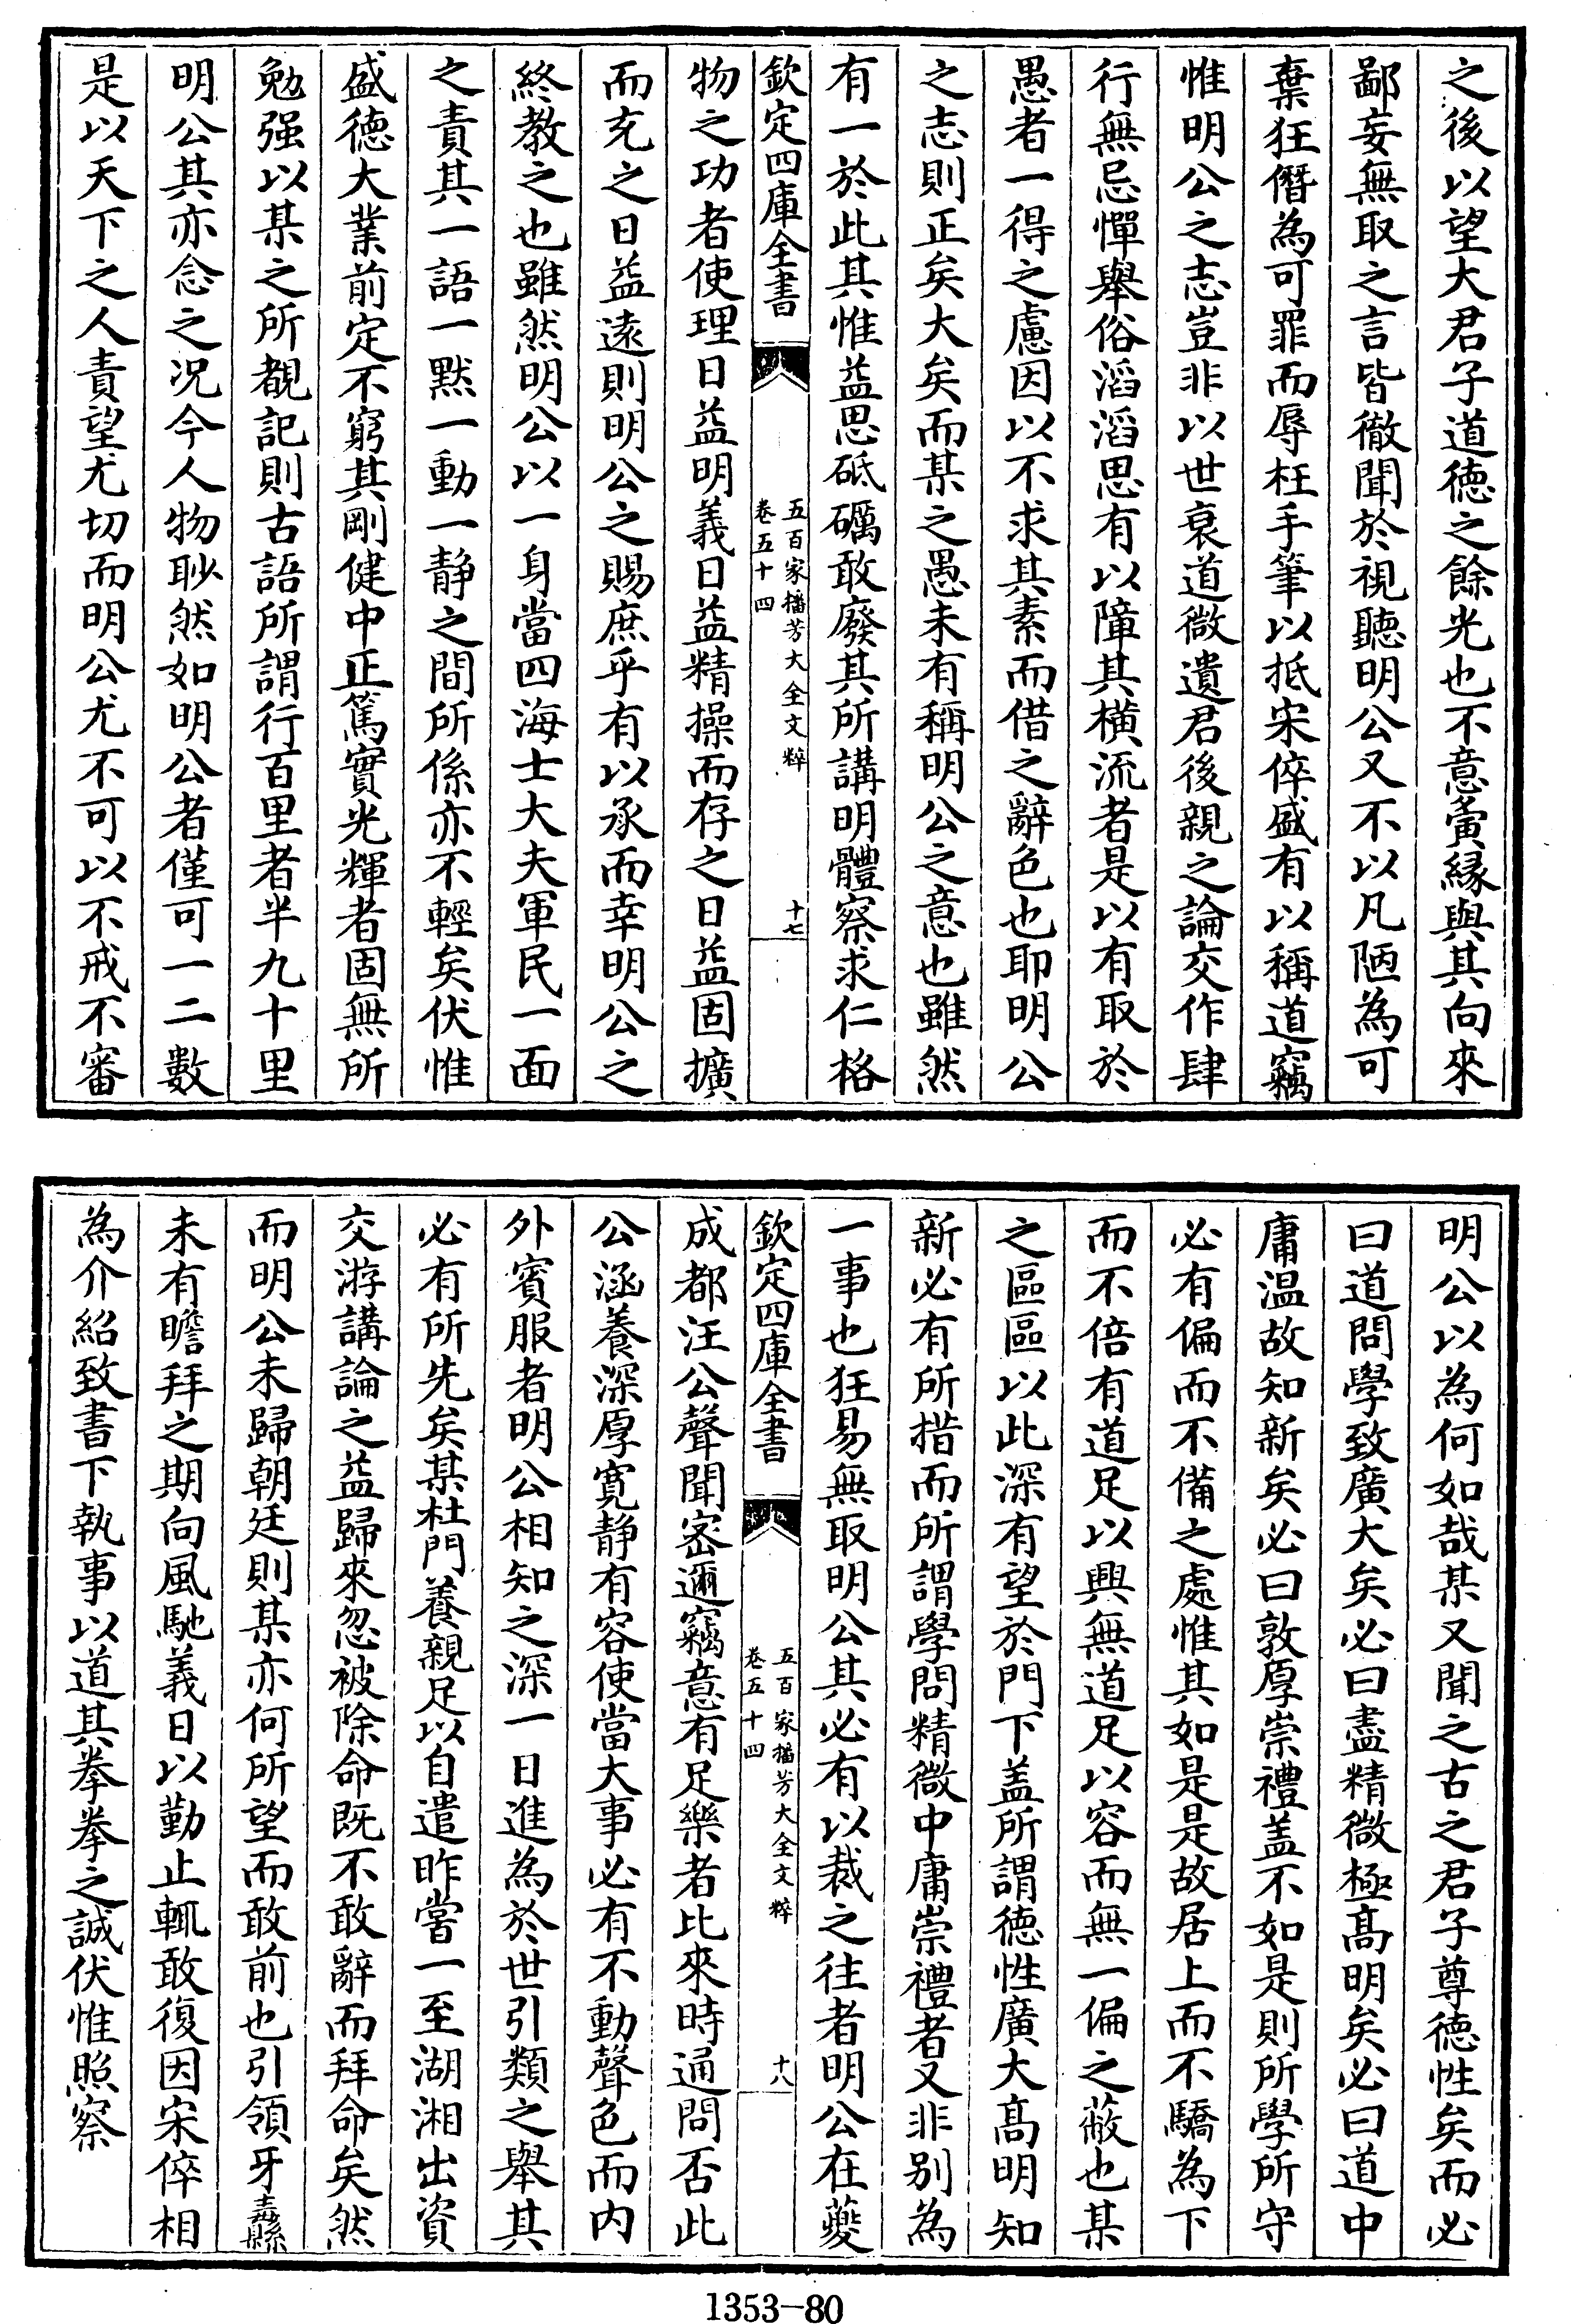 之後以望大君子道徳之餘光也不意夤緣與其向來
鄙妄無取之言皆徹聞於視聽明公又不以凡陋為可
棄狂僭為可罪而辱枉手筆以抵宋倅盛有以稱道竊
惟明公之志豈非以世衰道微遺君後親之論交作肆
行無忌憚舉俗滔滔思有以障其横流者是以有取於
愚者一得之慮因以不求其素而借之辭色也耶明公
之志則正矣大矣而某之愚未有稱明公之意也雖然
有一於此其惟益思砥礪敢廢其所講明體察求仁格
欽定四庫全書
五百家播芳大全文粹
卷五十四
十七
物之功者使理日益明義日益精操而存之日益固擴
而充之日益遠則明公之賜庶乎有以承而幸明公之
終教之也雖然明公以一身當四海士大夫軍民一面
之責其一語一黙一動一静之間所係亦不輕矣伏惟
盛徳大業前定不窮其剛健中正篤實光輝者固無所
勉强以某之所覩記則古語所謂行百里者半九十里
明公其亦念之况今人物眇然如明公者僅可一二數
是以天下之人責望尤切而明公尤不可以不戒不審
明公以為何如哉某又聞之古之君子尊徳性矣而必
曰道問學致廣大矣必曰盡精微極髙明矣必曰道中
庸温故知新矣必曰敦厚崇禮盖不如是則所學所守
必有偏而不備之處惟其如是是故居上而不驕為下
而不倍有道足以興無道足以容而無一偏之蔽也某
之區區以此深有望於門下盖所謂徳性廣大髙明知
新必有所措而所謂學問精微中庸崇禮者又非别為
一事也狂易無取明公其必有以裁之往者明公在夔
欽定四庫全書
五百家播芳大全文粹
卷五十四
十八
成都汪公聲聞宻邇竊意有足樂者比來時通問否此
公涵養深厚寛静有容使當大事必有不動聲色而内
外賓服者明公相知之深一日進為於世引類之舉其
必有所先矣某杜門養親足以自遣昨嘗一至湖湘出資
交游講論之益歸來忽被除命既不敢辭而拜命矣然
而明公未歸朝廷則某亦何所望而敢前也引領牙纛
未有瞻拜之期向風馳義日以勤止輒敢復因宋倅相
為介紹致書下執事以道其拳拳之誠伏惟照察
1353-80